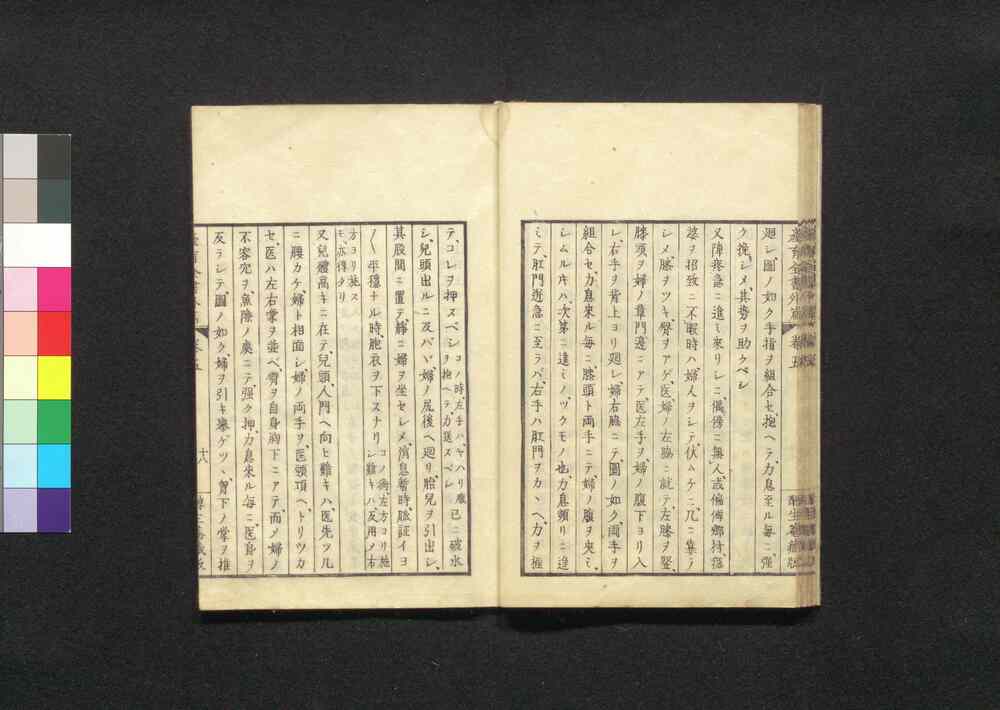 廻シ、圖ノ如ク手指ヲ組合セ、抱ヘテ力息至ル毎ニ、強
ク挽シメ、其勢ヲ助クベシ
又陣疼急ニ進ミ來リシニ、傍ニ無人、或偏郷ノ
婆ヲ招致ニ不暇時ハ、婦人ヲシテ、伏ムケニ、几ニ集ノ
シメ、膝ヲツキ、臀ヲアゲ、医婦ノ左脇ニ就テ、左膝ヲ竪、
膝頭ヲ婦ノ章門邊ニアテ、医左手ヲ、婦ノ腹下ヨリ入
レ、右手ヲ背上ヨリ廻シ、婦右脇ニテ、圖ノ如ク、両手ヲ
組合セ、力息來ル毎ニ、膝頭ト両手ニテ、婦ノ腹ヲ夾ミ、
シムルキハ、次第ニ進ミノヅクモノ也、力息頻リニ進
ミテ、肛門逬急ニ至ラバ、右手ハ肛門ヲカヽヘ、力ヲ極
産育全書外篇 卷五
テ、コレヲ押スベシ コノ時、左手ハ、ヤハリ腹ヲ抱ヘテ力送スベシ 已ニ破水
シ、兒頭出ルニ及バヾ、婦ノ尻後ヘ廻リ、胎兒ヲ引出シ、
其股間ニ置テ、靜ニ婦ヲ坐セシメ、消息暫時、脉証イヨ
〳〵平穏ナル時、胞衣ヲ下スナリ コノ術、左方ヨリ施シ難キハ、反用ノ右方ヨリ施スモ、亦得タリ
又兒體高キニ在テ、兒頭、人門ヘ向ヒ難キハ、医先ツ几
ニ腰カケ、婦ト相面シ、婦ノ両手ヲ、医頸項ヘ、トリツカ
セ、医ハ左右掌ヲ並ベ、臂ヲ自身胸下ニアテ、而ノ婦ノ
不容穴ヲ、魚際ノ處ニテ、强ク押、力息來ル毎ニ、医身ヲ
反ラシテ、圖ノ如ク、婦ヲ引キ擧ゲツヽ、胷下ノ掌ヲ推
十八